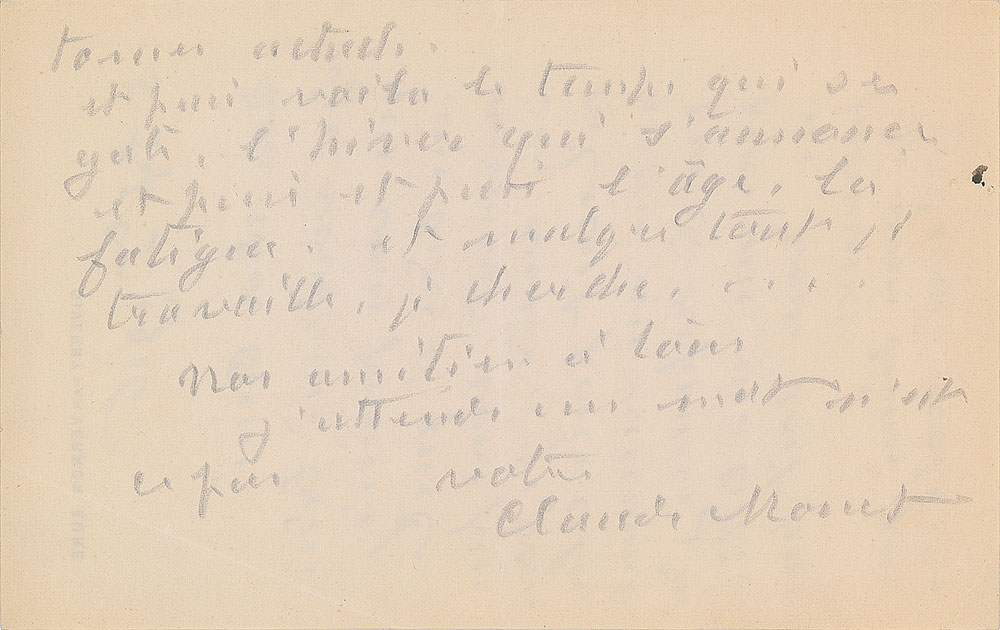 et puis voila le temps qui se
gate, l'hiver qui s'annonce
et puis et puis l'âge, la
fatigue. et malgré tout je
travaille, je cherche. . . . .
Nos amitiés à tous
j'attends un mot n'est
ce pas votre
Claude Monet